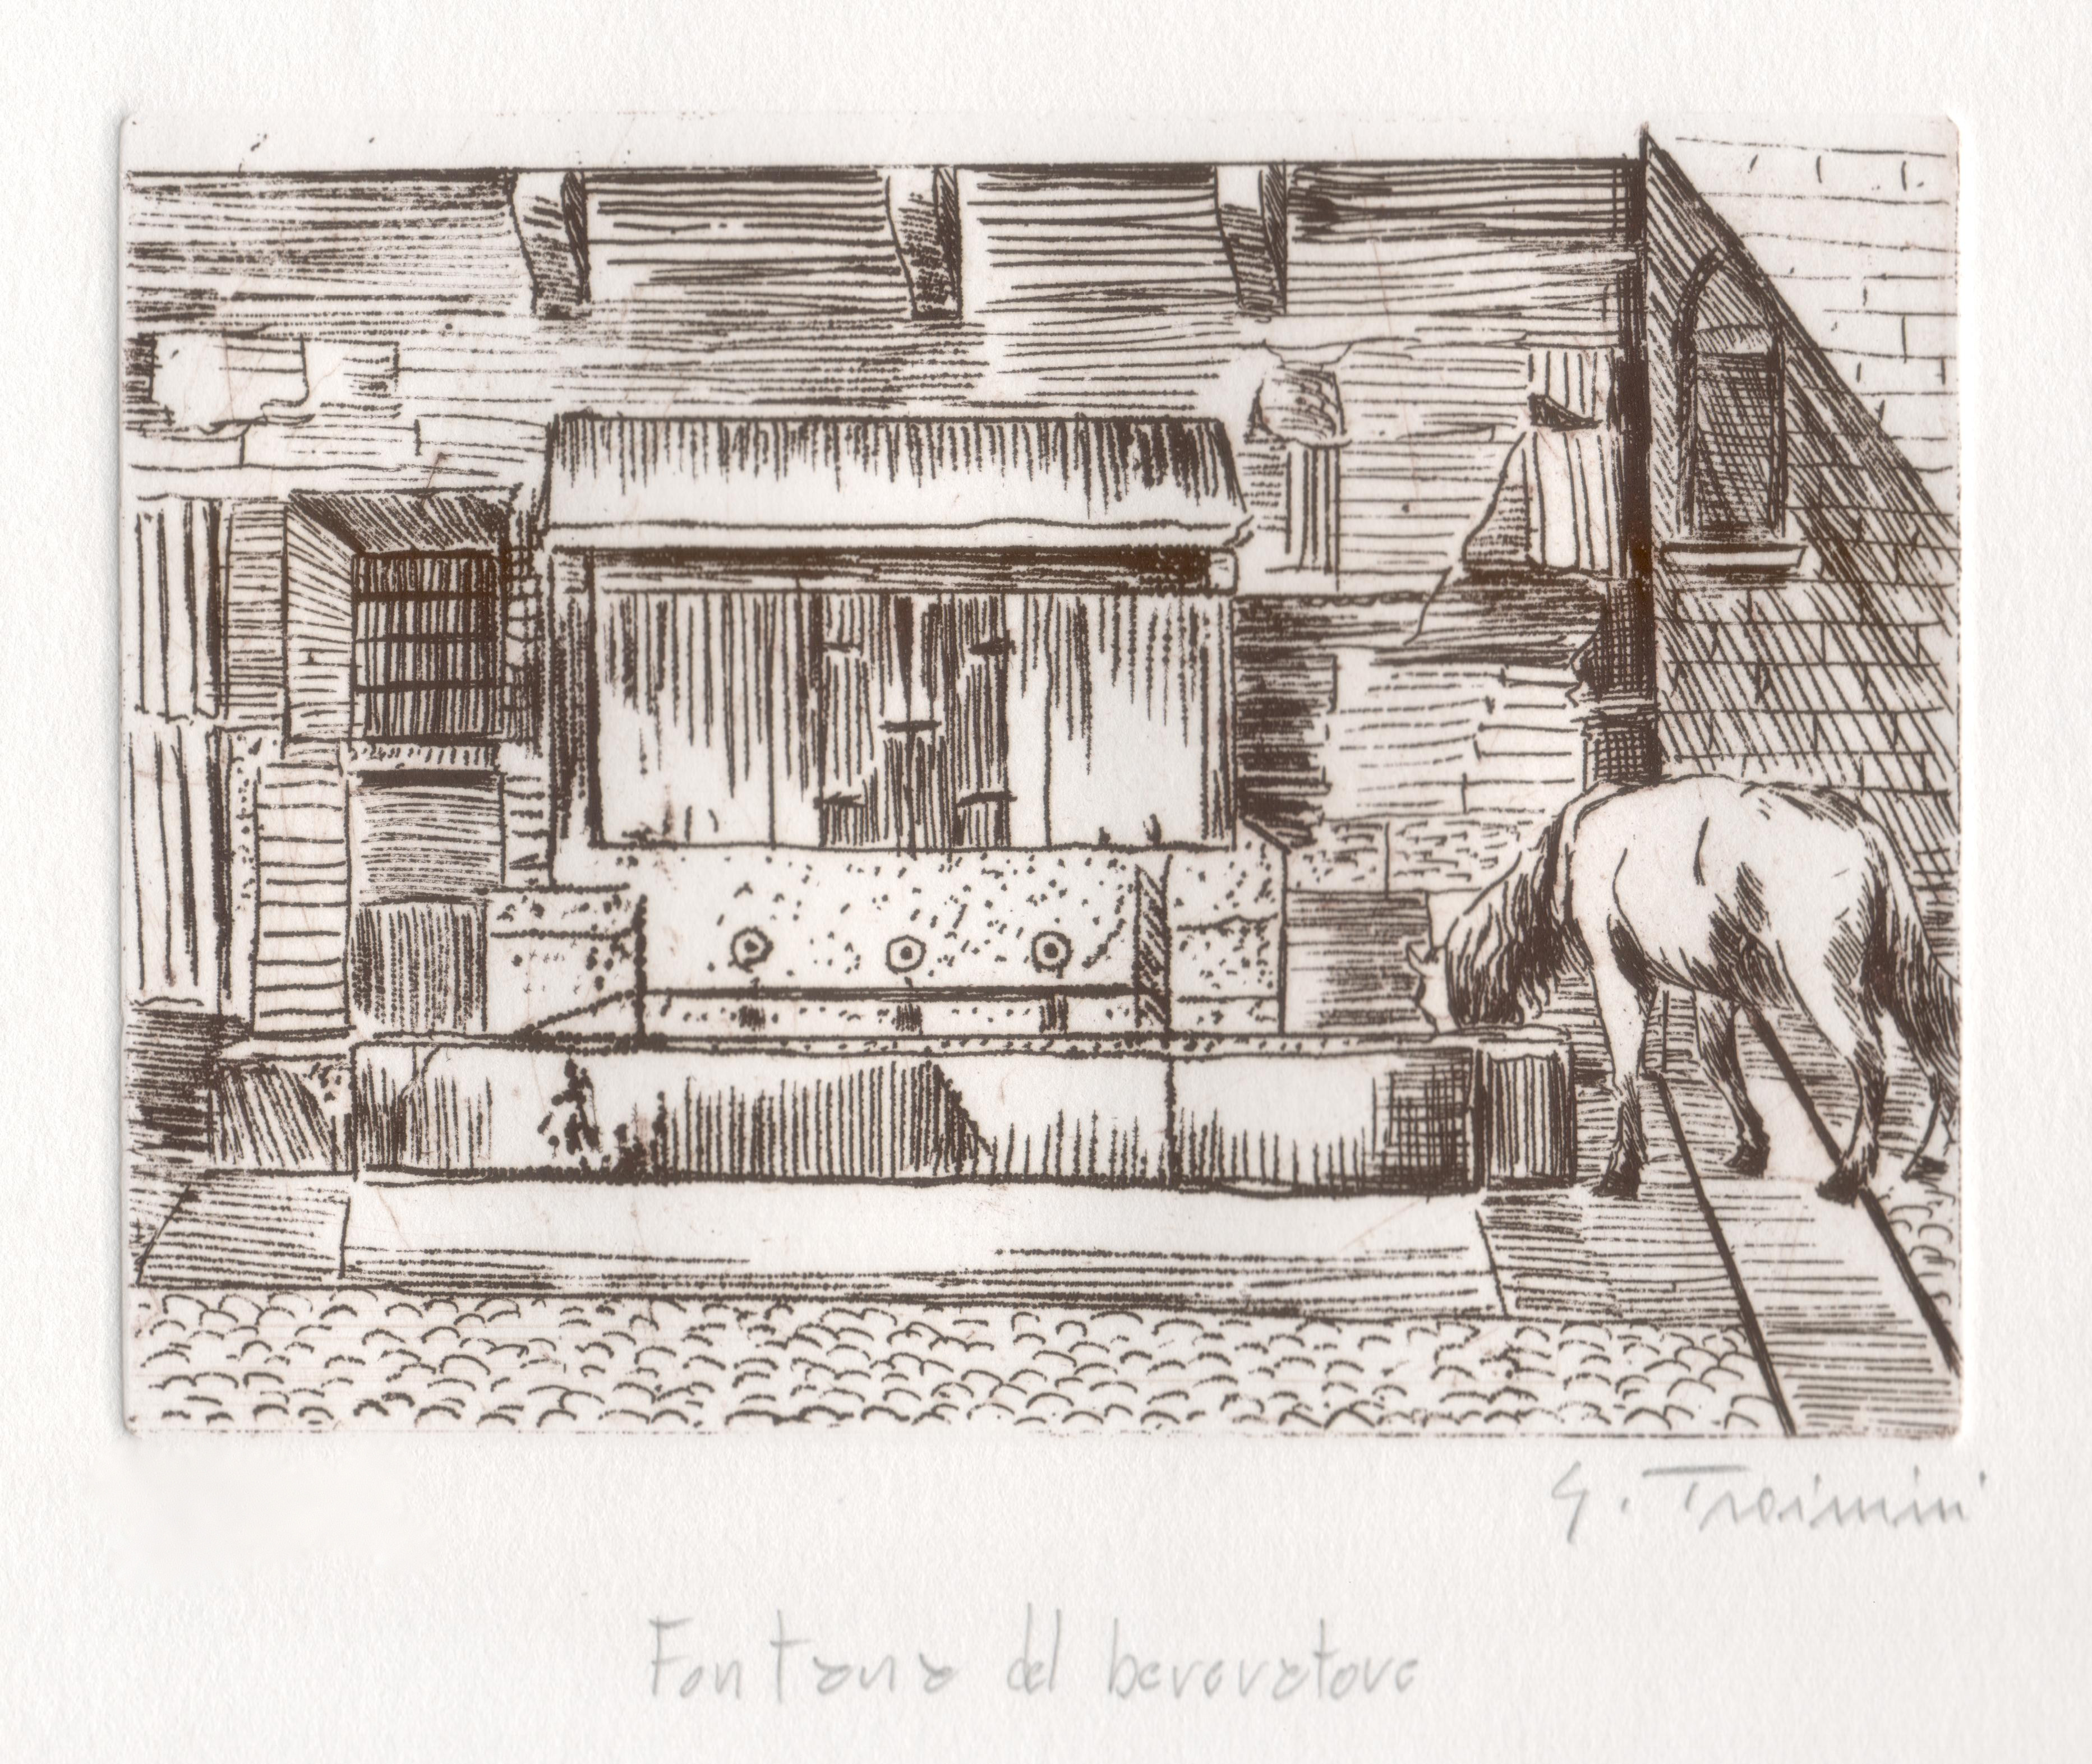 G. Troimini
Fontana del beveratore